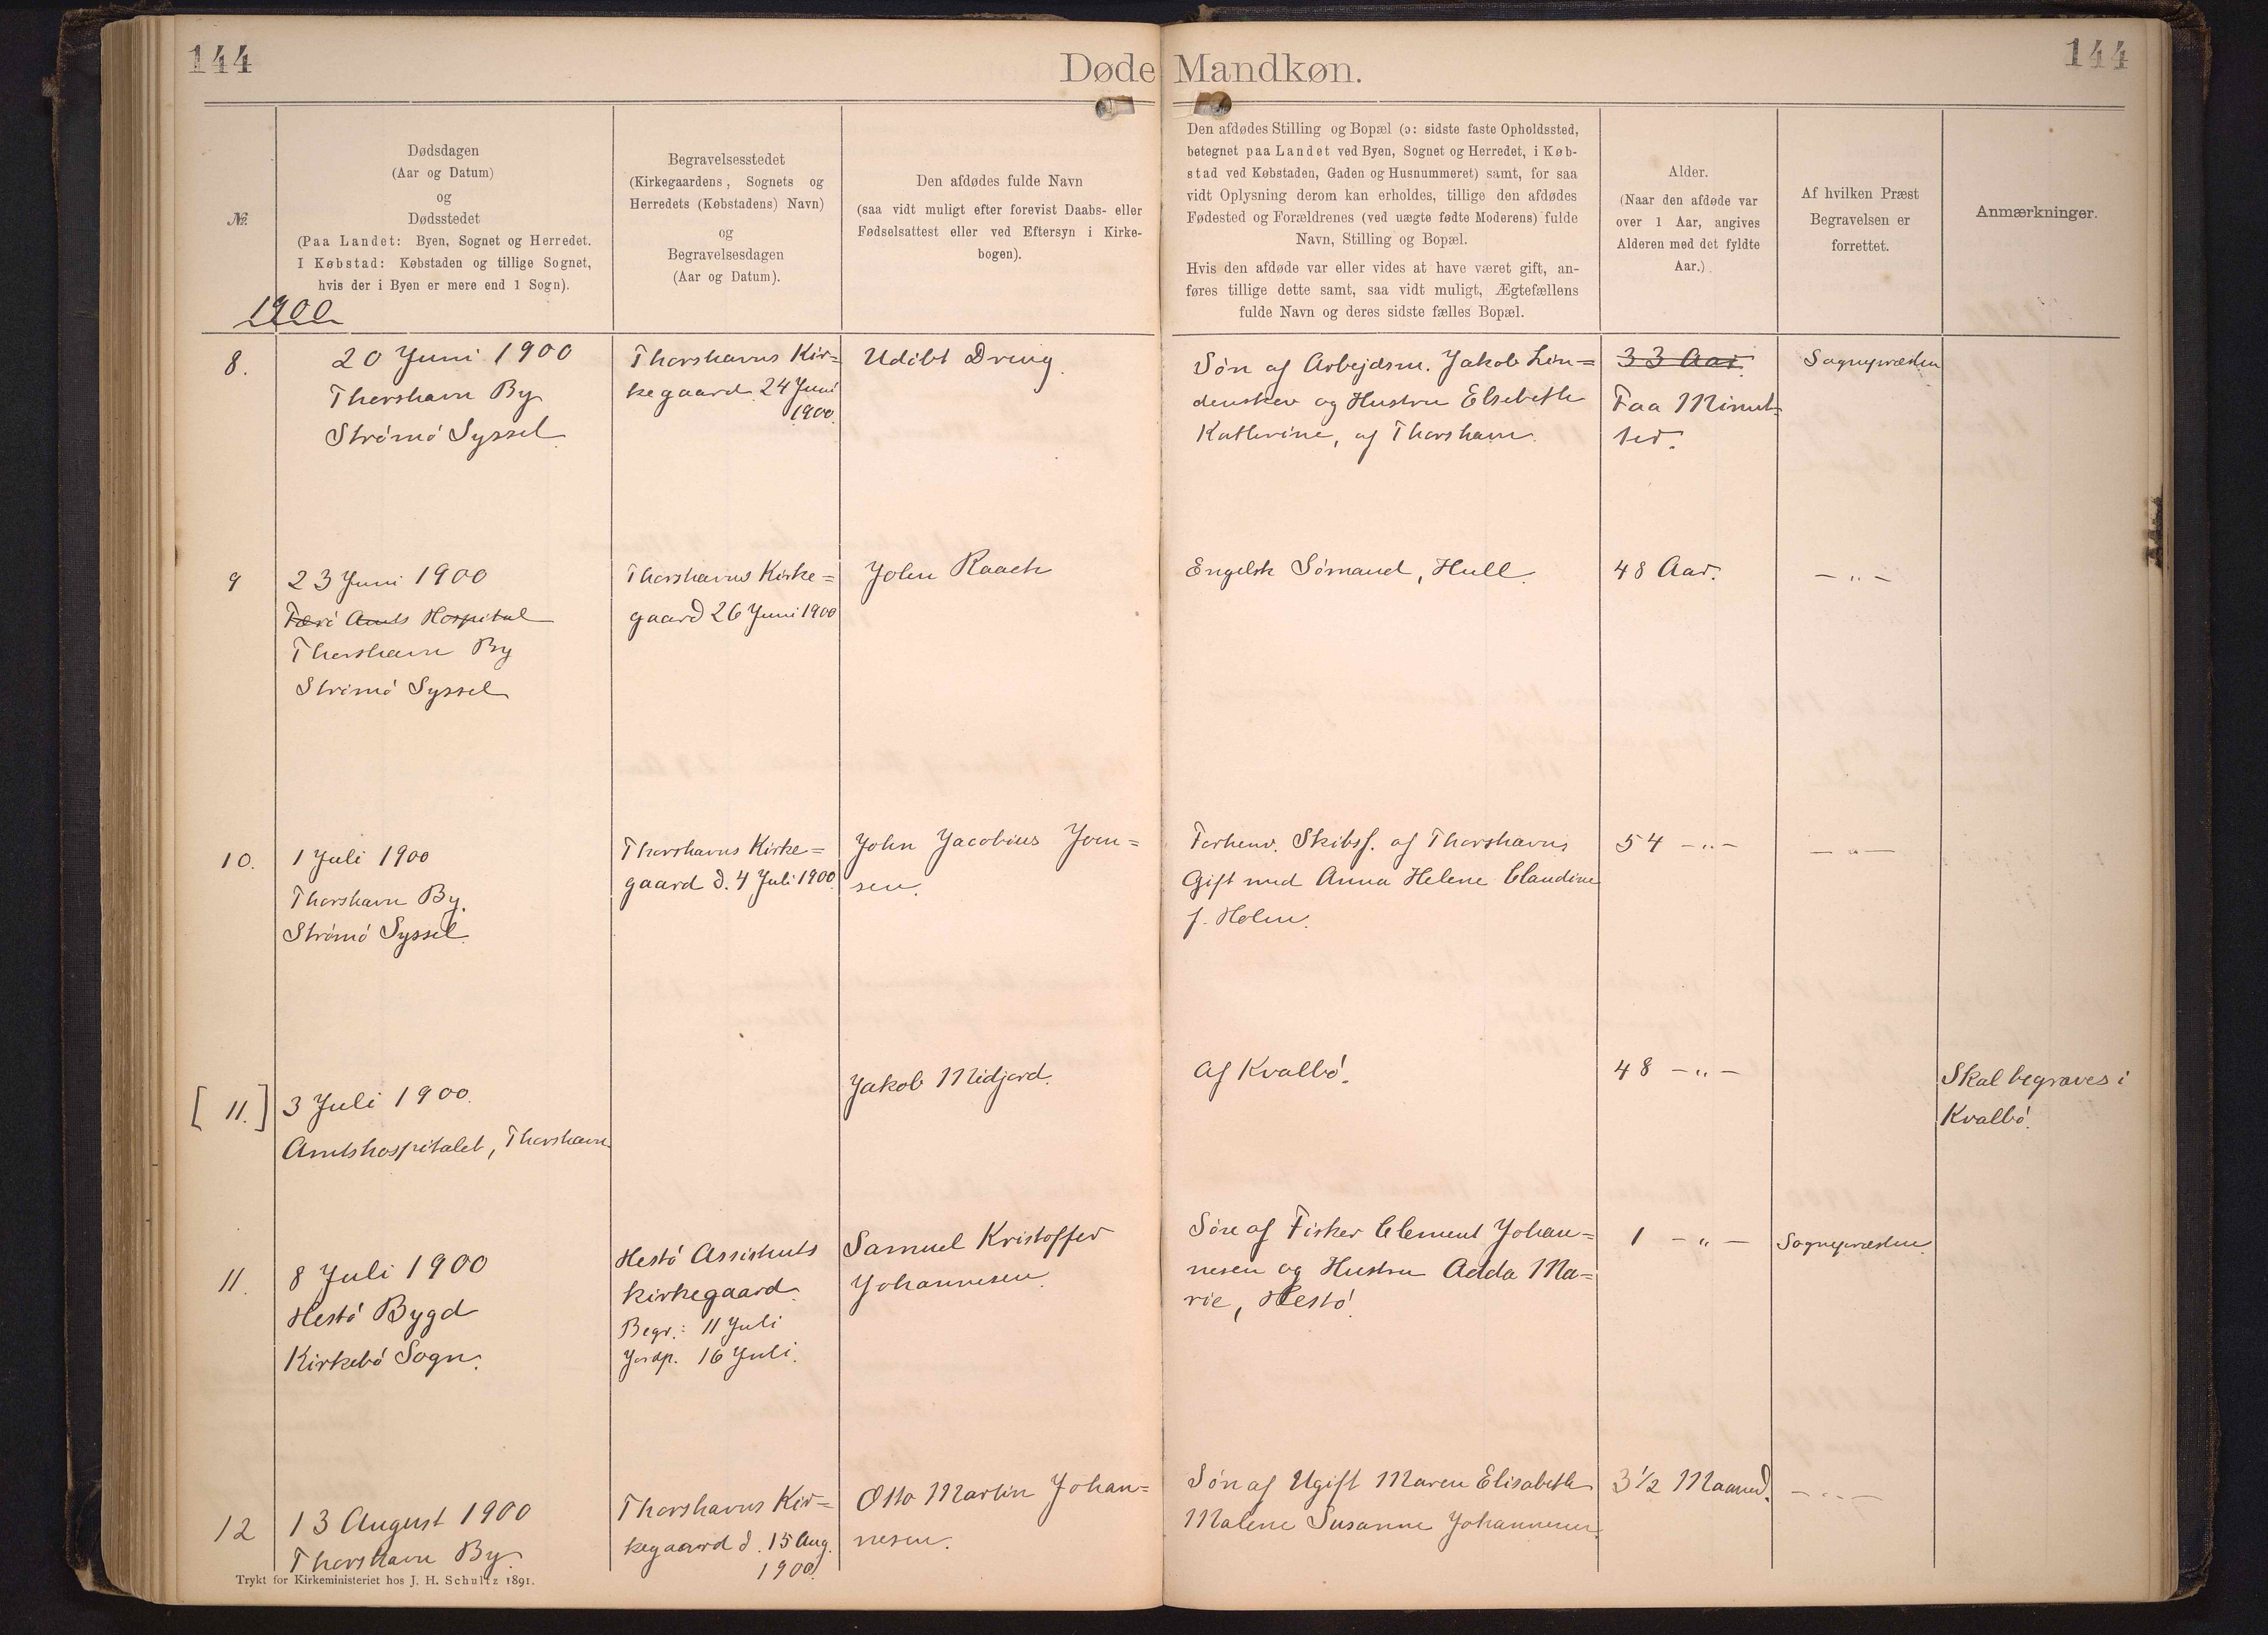 144
Døde Mandkøn.
144
№
Dødsdagen
(Aar og Datum)
og
Dødsstedet
(Paa Landet: Byen, Sognet og Herredet.
I Købstad: Købstaden og tillige Sognet,
hvis der i Byen er mere end 1 Sogn).
Begravelsesstedet
(Kirkegaardens, Sognets og
Herredets (Købstadens) Navn)
og
Begravelsesdagen
(Aar og Datum).
Den afdødes fulde Navn
(saa vidt muligt efter forevist Daabs- eller
Fødselsattest eller ved Eftersyn i Kirke-
bogen).
Den afdødes Stilling og Bopæl (ɔ: sidste faste Opholdssted,
betegnet paa Landet ved Byen, Sognet og Herredet, i Køb-
stad ved Købstaden, Gaden og Husnummeret) samt, for saa
vidt Oplysning derom kan erholdes, tillige den afdødes
Fødested og Forældrenes (ved uægte fødte Moderens) fulde
Navn, Stilling og Bopæl.
Hvis den afdøde var eller vides at have været gift, an-
føres tillige dette samt, saa vidt muligt, Ægtefællens
fulde Navn og deres sidste fælles Bopæl.
Alder.
(Naar den afdøde var
over 1 Aar, angives
Alderen med det fyldte
Aar.)
Af hvilken Præst
Begravelsen er
forrettet.
Anmærkninger.
1900
8.
20 Juni 1900
Thorshavn By
Strømø Syssel
Thorshavns Kir=
kegaard 24 Juni
1900
Udøbt Dreng.
Søn af Arbejdsm. Jakob Lin=
denskov og Hustru Elsebeth
Kathrine, af Thorshavn.
33 Aar.
Faa Minut-
ter.
Sognepræsten
9
23 Juni 1900
Færø Amts Hospital
Thorshavn By
Strømø Syssel
Thorshavns Kirke=
gaard 26 Juni 1900
John Raach
Engelsk Sømand, Hull.
48 Aar.
— „ —
10.
1 Juli 1900
Thorshavn By.
Strømø Syssel.
Thorshavns Kirke=
gaard d. 4 Juli 1900
John Jacobius Joen=
sen.
Forhenv. Skibsf. af Thorshavn
Gift med Anna Helene Claudine
f. Holm.
54 — „ —
— „ —
[11.]
3 Juli 1900.
Amtshospitalet, Thorshavn.
Jakob Midjord.
Af Kvalbø.
48 — „ —
Skal begraves i
Kvalbø.
11.
8 Juli 1900
Hestø Bygd
Kirkebø Sogn.
Hestø Assistents
kirkegaard.
Begr.: 11 Juli
Jordp. 16 Juli.
Samuel Kristoffer
Johannesen.
Søn af Fisker Clement Johan=
nesen og Hustru Adda Ma=
rie, Hestø.
1 — „ —
Sognepræsten.
12
13 August 1900
Thorshavn By.
Thorshavns Kir=
kegaard d. 15 Aug.
1900.
Otto Martin Johan=
nesen.
Søn af Ugift Maren Elisabeth
Malene Susanne Johannesen.
3½ Maaned.
— „ —
Trykt for Kirkeministeriet hos J. H. Schultz 1891.